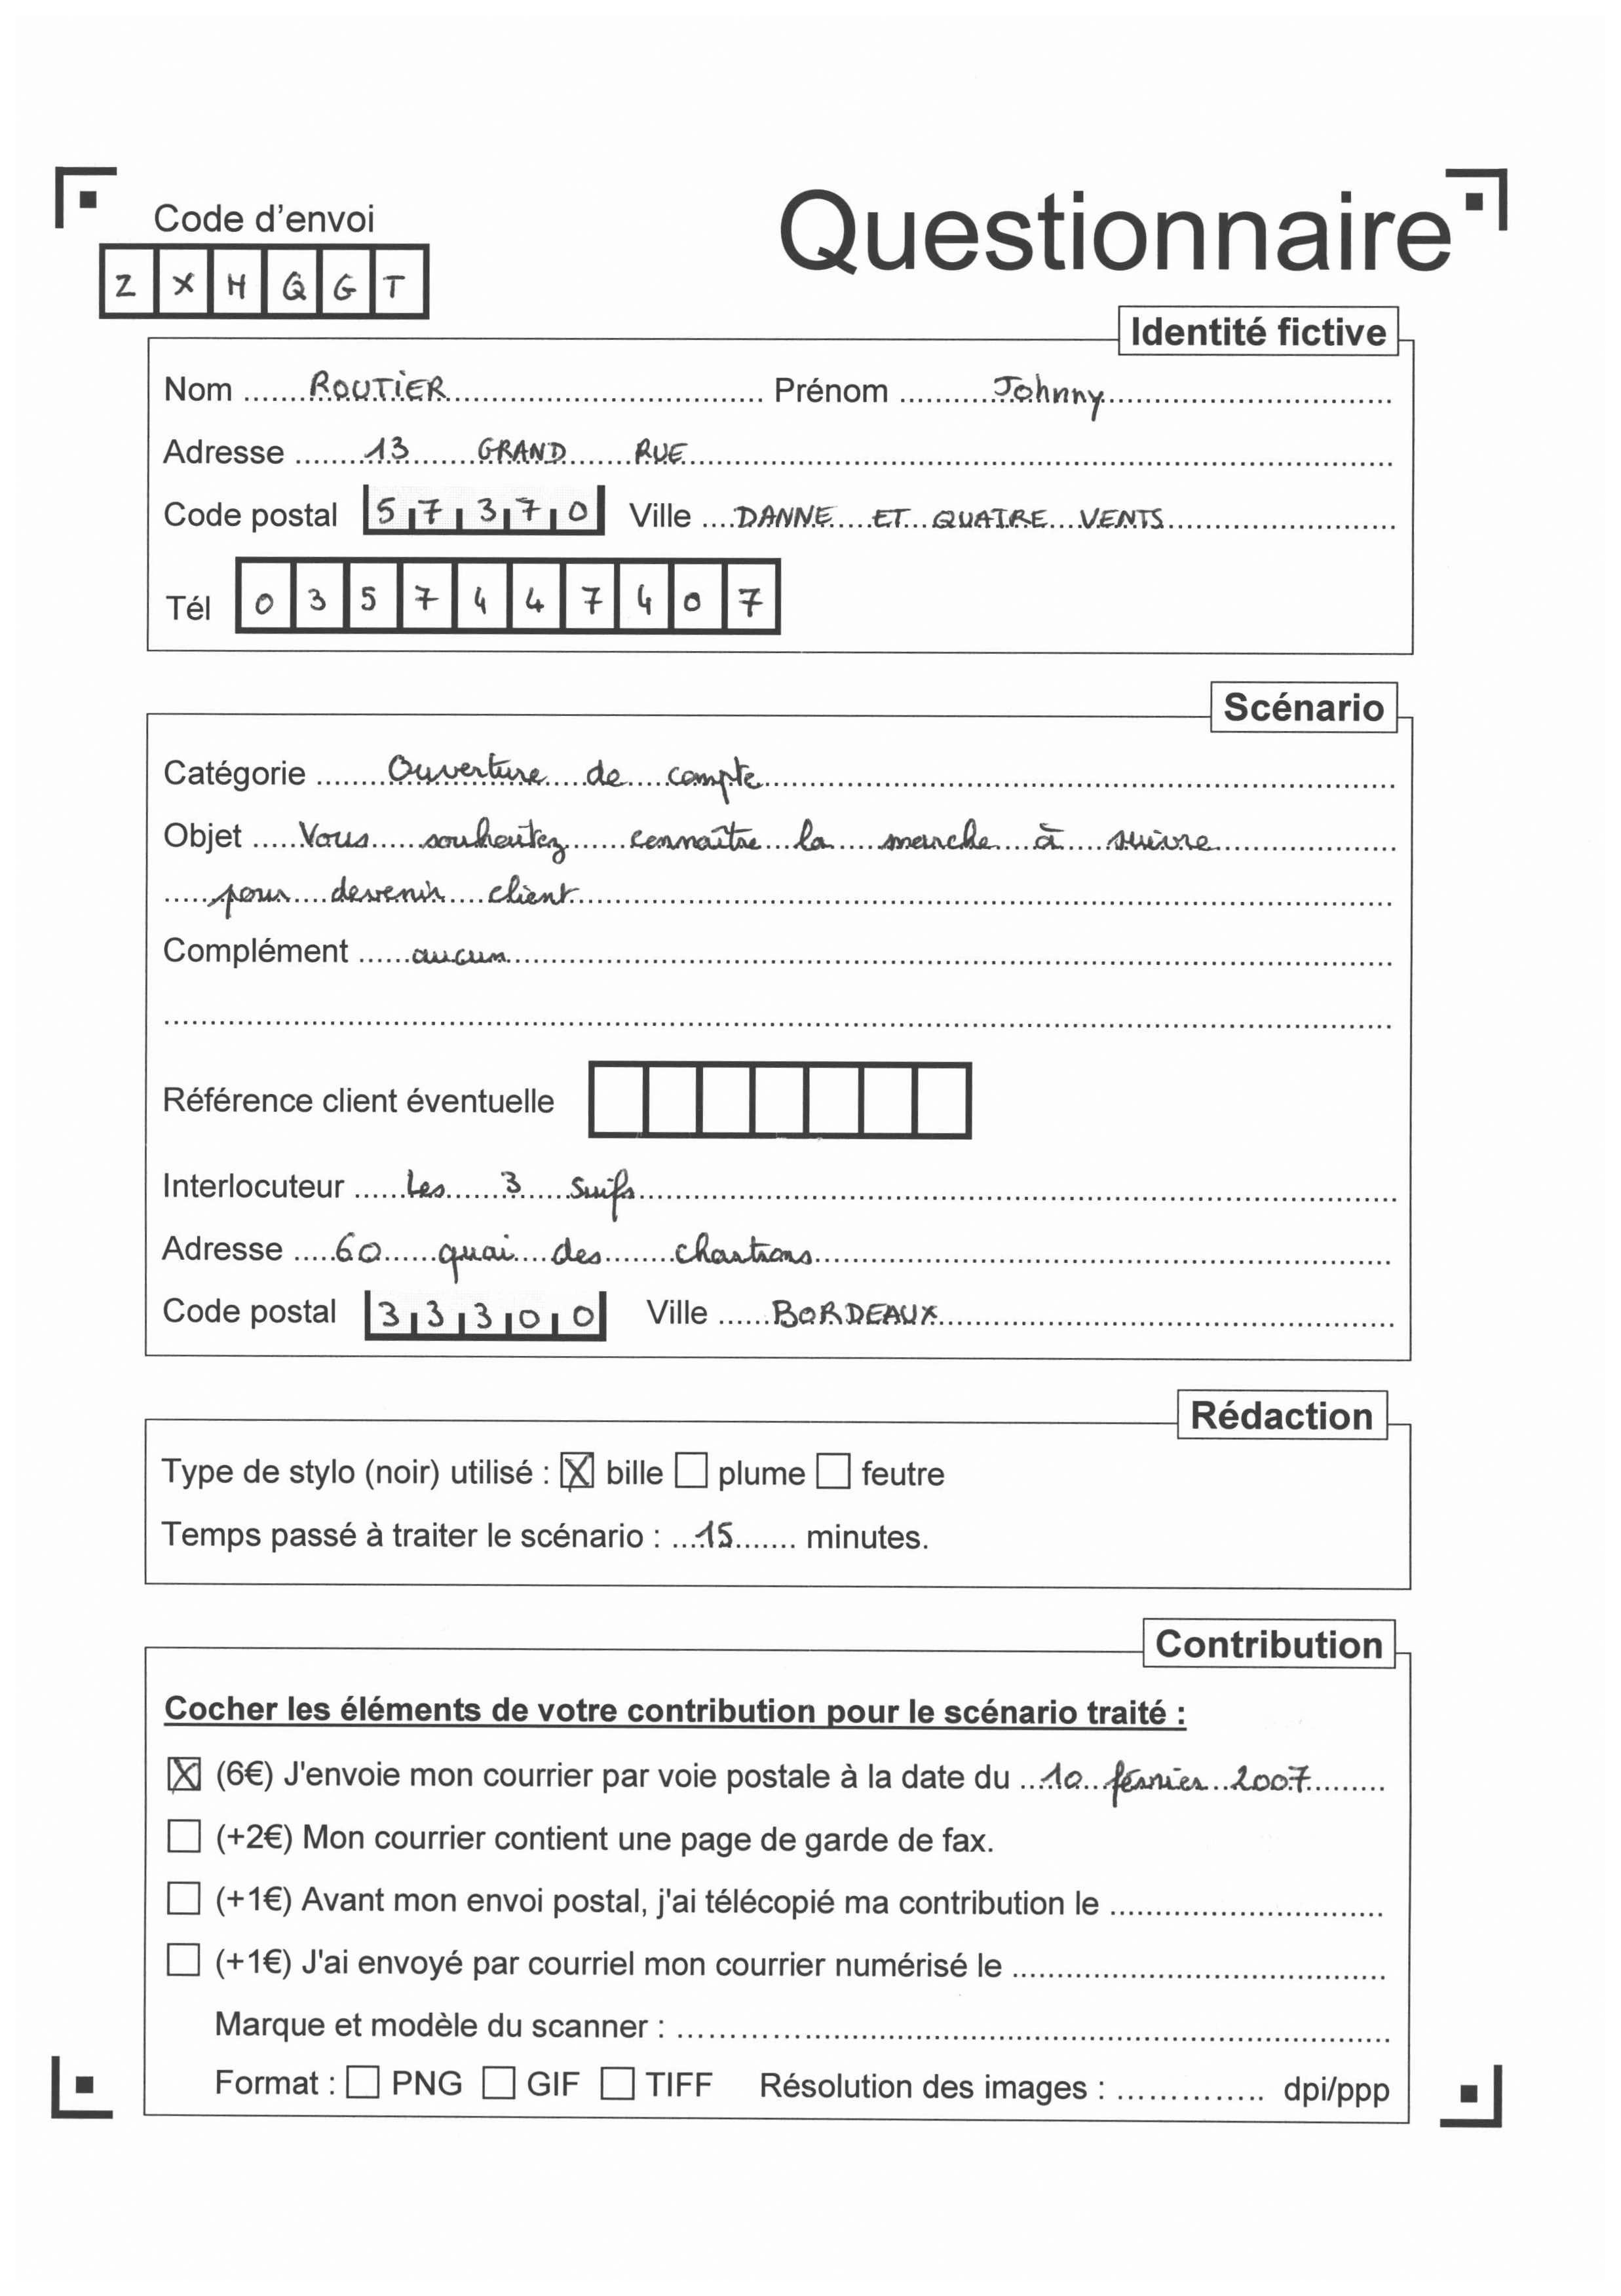 Code d'envoi
Questionnaire
Z X H Q G T
Identité fictive
Nom ROUTIER Prénom Johnny
Adresse 13 GRAND RUE
Code postal 57370 Ville DANNE ET QUATRE VENTS
Tél 0357447407
Scénario
Catégorie Ouverture de compte
Objet Vous souhaitez connaître la marche à suivre
pour devenir client
Complément aucun
Référence client éventuelle
Interlocuteur Les 3 suifs
Adresse 60 quai des chartrons
Code postal 33300 Ville BORDEAUX
Rédaction
Type de stylo (noir) utilisé : ☒ bille ☐ plume ☐ feutre
Temps passé à traiter le scénario : 15 minutes.
Contribution
Cocher les éléments de votre contribution pour le scénario traité :
☒ (6€) J'envoie mon courrier par voie postale à la date du 10 février 2007
☐ (+2€) Mon courrier contient une page de garde de fax.
☐ (+1€) Avant mon envoi postal, j'ai télécopié ma contribution le
☐ (+1€) J'ai envoyé par courriel mon courrier numérisé le
Marque et modèle du scanner :
Format : ☐ PNG ☐ GIF ☐ TIFF Résolution des images : dpi/ppp